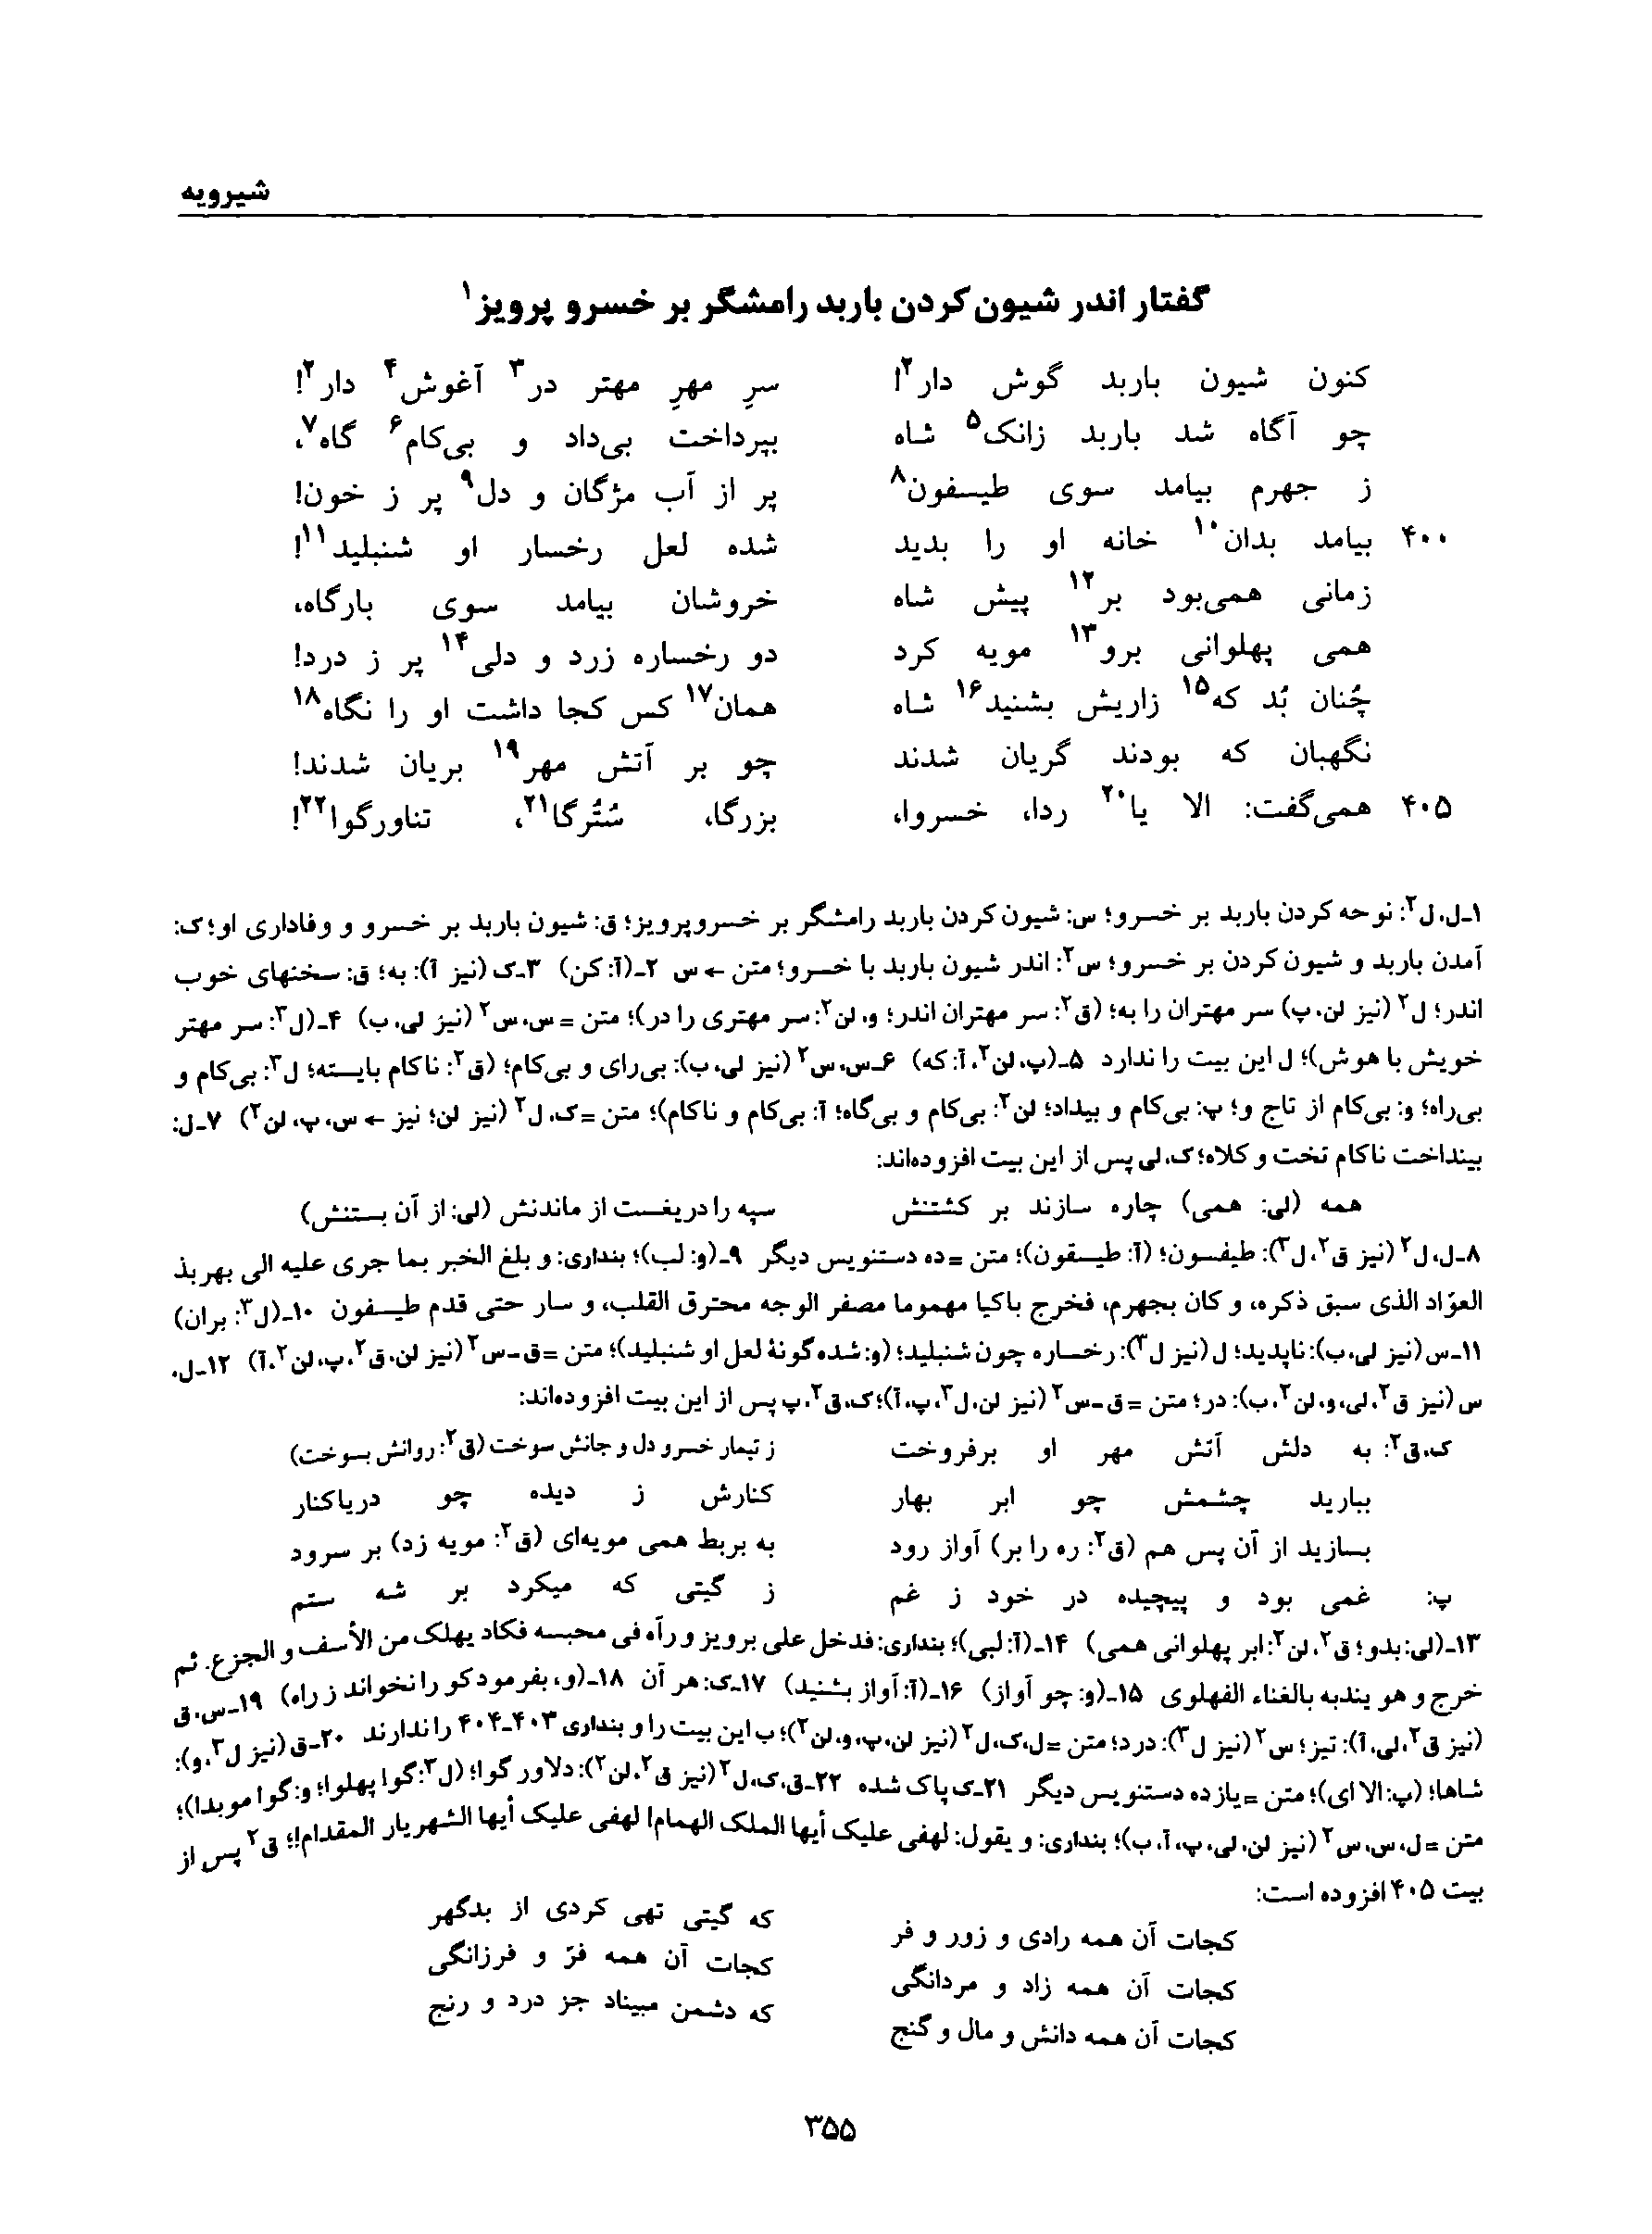 شیرویه
گفتار اندر شیون کردن باربد رامشگر بر خسرو پرویز۱
کنون شیون باربد گوش دار۲! سرِ مهرِ مهتر در۳ آغوش۴ دار۲!
چو آگاه شد باربد زانک۵ شاه بپرداخت بی‌داد و بی‌کام۶ گاه۷،
ز جهرم بیامد سوی طیسفون۸ پر از آب مژگان و دل۹ پر ز خون!
۴۰۰ بیامد بدان۱۰ خانه او را بدید شده لعل رخسار او شنبلید۱۱!
زمانی همی‌بود بر۱۲ پیش شاه خروشان بیامد سوی بارگاه،
همی پهلوانی برو۱۳ مویه کرد دو رخساره زرد و دلی۱۴ پر ز درد!
چُنان بُد که۱۵ زاریش بشنید۱۶ شاه همان۱۷ کس کجا داشت او را نگاه۱۸
نگهبان که بودند گریان شدند چو بر آتش مهر۱۹ بریان شدند!
۴۰۵ همی‌گفت: الا یا۲۰ ردا، خسروا، بزرگا، سُتُرگا۲۱، تناورگوا۲۲!
۱ـ‌ل، ل۲: نوحه کردن باربد بر خسرو؛ س: شیون کردن باربد رامشگر بر خسروپرویز؛ ق: شیون باربد بر خسرو و وفاداری او؛ ک:
آمدن باربد و شیون کردن بر خسرو؛ س۲: اندر شیون باربد با خسرو؛ متن ← س ۲ـ(آ: کن) ۳ـ‌ک (نیز آ): به؛ ق: سخنهای خوب
اندر؛ ل۲ (نیز لن، پ) سر مهتران را به؛ (ق۲: سر مهتران اندر؛ و، لن۲: سر مهتری را در)؛ متن = س، س۲ (نیز لی، ب) ۴ـ(ل۳: سر مهتر
خویش با هوش)؛ ل این بیت را ندارد ۵ـ(پ، لن۲، آ: که) ۶ـ‌س، س۲ (نیز لی، ب): بی‌رای و بی‌کام؛ (ق۲: ناکام بایسته؛ ل۳: بی‌کام و
بی‌راه؛ و: بی‌کام از تاج و؛ پ: بی‌کام و بیداد؛ لن۲: بی‌کام و بی‌گاه؛ آ: بی‌کام و ناکام)؛ متن = ک، ل۲ (نیز لن؛ نیز ← س، پ، لن۲) ۷ـ‌ل:
بینداخت ناکام تخت و کلاه؛ ک، لی پس از این بیت افزوده‌اند:
همه (لی: همی) چاره سازند بر کشتنش سپه را دریغست از ماندنش (لی: از آن بستنش)
۸ـ‌ل، ل۲ (نیز ق۲، ل۳): طیفسون؛ (آ: طیسقون)؛ متن = ده دستنویس دیگر ۹ـ(و: لب)؛ بنداری: و بلغ الخبر بما جری علیه الی بهربذ
العوّاد الذی سبق ذکره، و کان بجهرم، فخرج باکیا مهموما مصفر الوجه محترق القلب، و سار حتی قدم طیسفون ۱۰ـ(ل۳: بران)
۱۱ـ‌س (نیز لی، ب): ناپدید؛ ل (نیز ل۳): رخساره چون شنبلید؛ (و: شده گونهٔ لعل او شنبلید)؛ متن = ق ـ س۲ (نیز لن، ق۲، پ، لن۲، آ) ۱۲ـ‌ل،
س (نیز ق۲، لی، و، لن۲، ب): در؛ متن = ق ـ س۲ (نیز لن، ل۳، پ، آ)؛ ک، ق۲، پ پس از این بیت افزوده‌اند:
ک، ق۲: به دلش آتش مهر او برفروخت ز تیمار خسرو دل و جانش سوخت (ق۲: روانش بسوخت)
ببارید چشمش چو ابر بهار کنارش ز دیده چو دریاکنار
بسازید از آن پس هم (ق۲: ره را بر) آواز رود به بربط همی مویه‌ای (ق۲: مویه زد) بر سرود
پ: غمی بود و پیچیده در خود ز غم ز گیتی که میکرد بر شه ستم
۱۳ـ(لی: بدو؛ ق۲، لن۲: ابر پهلوانی همی) ۱۴ـ(آ: لبی)؛ بنداری: فدخل علی برویز و رآه فی محبسه فکاد یهلک من الأسف و الجزع. ثم
خرج و هو یندبه بالغناء الفهلوی ۱۵ـ(و: چو آواز) ۱۶ـ(آ: آواز بشنید) ۱۷ـ‌ک: هر آن ۱۸ـ(و، بفرمود کو را نخواند ز راه) ۱۹ـ‌س، ق
(نیز ق۲، لی، آ): تیز؛ س۲ (نیز ل۳): درد؛ متن = ل، ک، ل۲ (نیز لن، پ، و، لن۲)؛ ب این بیت را و بنداری ۴۰۳ـ۴۰۴ را ندارند ۲۰ـ‌ق (نیز ل۳، و):
شاها؛ (پ: الا ای)؛ متن = یازده دستنویس دیگر ۲۱ـ‌ک پاک شده ۲۲ـ‌ق، ک، ل۲ (نیز ق۲، لن۲): دلاور گوا؛ (ل۳: گوا پهلوا؛ و: گوا موبدا)؛
متن = ل، س، س۲ (نیز لن، لی، پ، آ، ب)؛ بنداری: و یقول: لهفی علیک أیها الملک الهمام! لهفی علیک أیها الشهریار المقدام!؛ ق۲ پس از
بیت ۴۰۵ افزوده است:
کجات آن همه رادی و زور و فر که گیتی تهی کردی از بدگهر
کجات آن همه زاد و مردانگی کجات آن همه فرّ و فرزانگی
کجات آن همه دانش و مال و گنج که دشمن مبیناد جز درد و رنج
۳۵۵